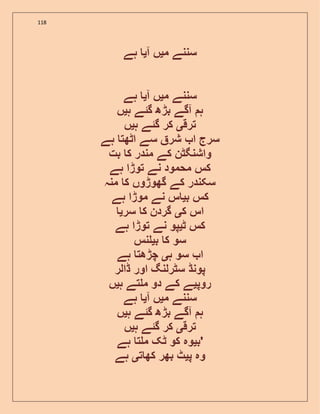 118
سننے میں آیا ہے
سننے میں آیا ہے
ہم آگے بڑھ گئے ہیں
ترقی کر گئے ہیں
سرج اب شرق سے اٹھتا ہے
واشنگٹن کے مندر کا بت
کس محمود نے توڑا ہے
سکندر کے گھوڑوں کا منہ
کس بیاس نے موڑا ہے
اس کی گردن کا سریا
کس ٹیپو نے توڑا ہے
سو کا بیلنس
اب سو ہی چڑھتا ہے
پونڈ سٹرلنگ اور ڈالر
روپیے کے دو ملتے ہیں
سننے میں آیا ہے
ہم آگے بڑھ گئے ہیں
ترقی کر گئے ہیں
'بیوہ کو ٹک ملتا ہے
وہ پیٹ بھر کھاتی ہے